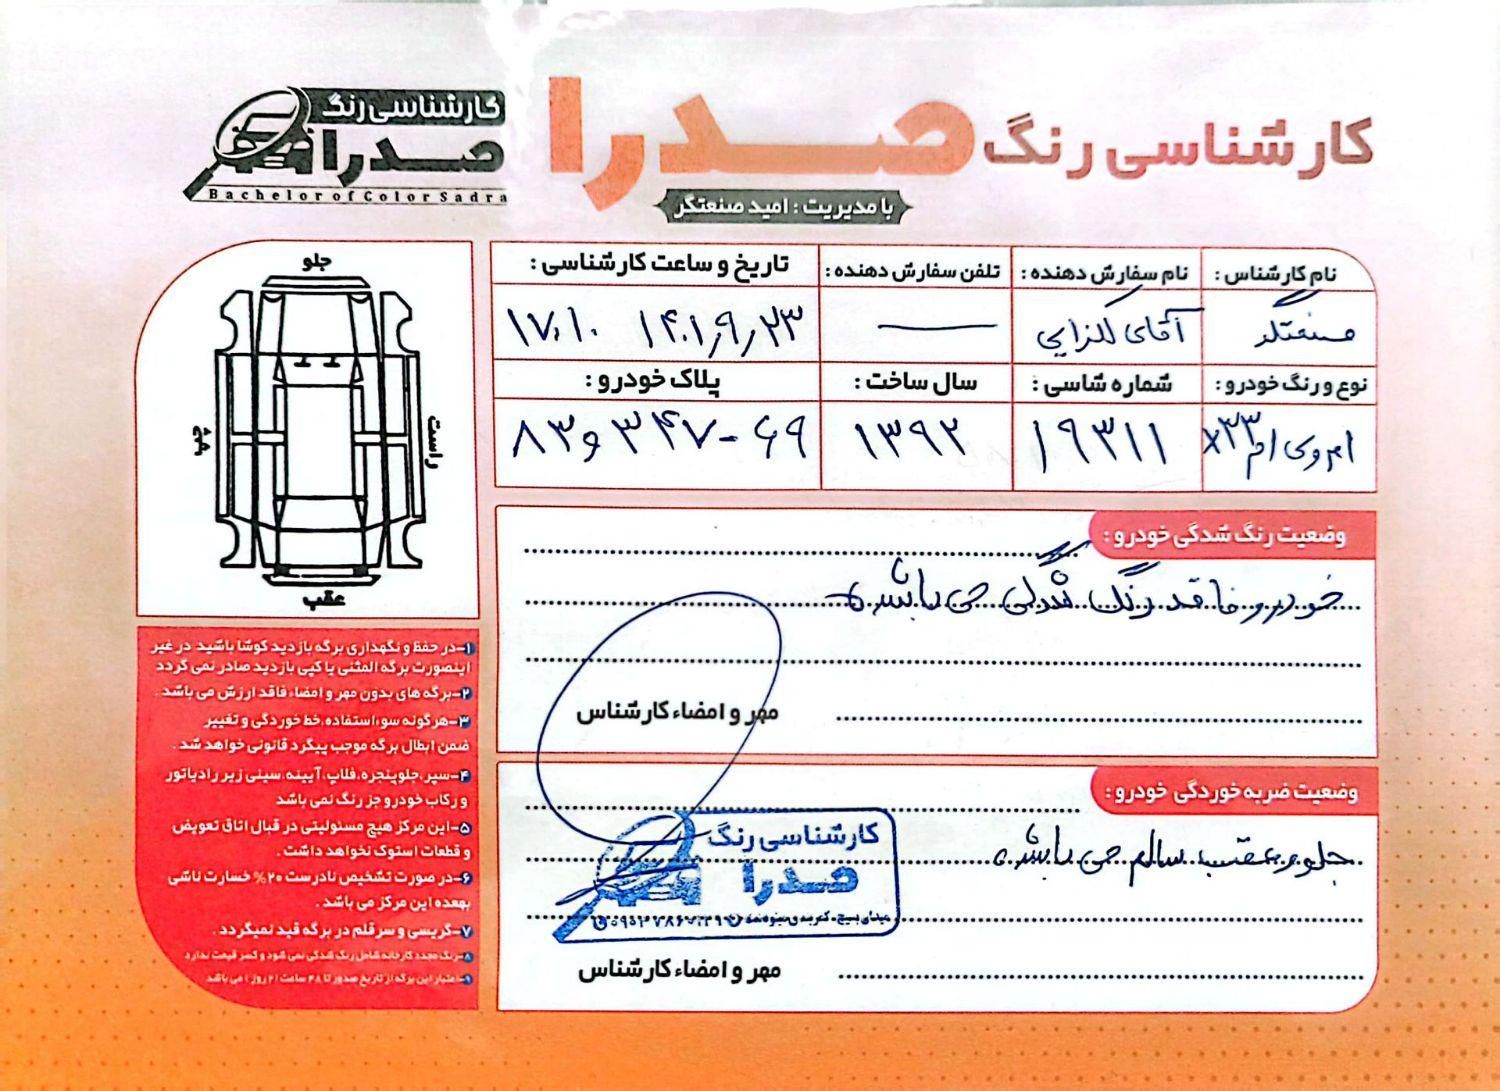 کارشناسی رنگ صدرا
با مدیریت : امید صنعتگر
کارشناسی رنگ
صدرا
Bachelor of Color Sadra
نام کارشناس : نام سفارش دهنده : تلفن سفارش دهنده : تاریخ و ساعت کارشناسی :
صنعتگر آقای گلزایی ۱۴۰۱٫۹٫۲۳ ۱۷:۱۰
نوع و رنگ خودرو : شماره شاسی : سال ساخت : پلاک خودرو :
ام وی ام x۳۳ ۱۹۳۱۱ ۱۳۹۲ ۸۳ و ۳۴۷-۶۹
جلو
راست
چپ
عقب
وضعیت رنگ شدگی خودرو :
خودرو فاقد رنگ شدگی می باشد
مهر و امضاء کارشناس
وضعیت ضربه خوردگی خودرو :
جلو و عقب سالم می باشد
کارشناسی رنگ
صدرا
مهر و امضاء کارشناس
۱-در حفظ و نگهداری برگه بازدید کوشا باشید در غیر
اینصورت برگه المثنی یا کپی بازدید صادر نمی گردد
۲-برگه های بدون مهر و امضاء فاقد ارزش می باشد .
۳-هرگونه سوءاستفاده،خط خوردگی و تغییر
ضمن ابطال برگه موجب پیگرد قانونی خواهد شد .
۴-سپر،جلوپنجره،فلاپ،آیینه،سینی زیر رادیاتور
و رکاب خودرو جز رنگ نمی باشد
۵-این مرکز هیچ مسئولیتی در قبال اتاق تعویض
و قطعات استوک نخواهد داشت .
۶-در صورت تشخیص نادرست ۲۰% خسارت ناشی
بعهده این مرکز می باشد .
۷-گریسی و سرقلم در برگه قید نمیگردد .
۸-رنگ مجدد کارخانه شامل رنگ شدگی نمی شود و کسر قیمت ندارد
۹-اعتبار این برگه از تاریخ صدور تا ۴۸ ساعت (۲ روز) می باشد